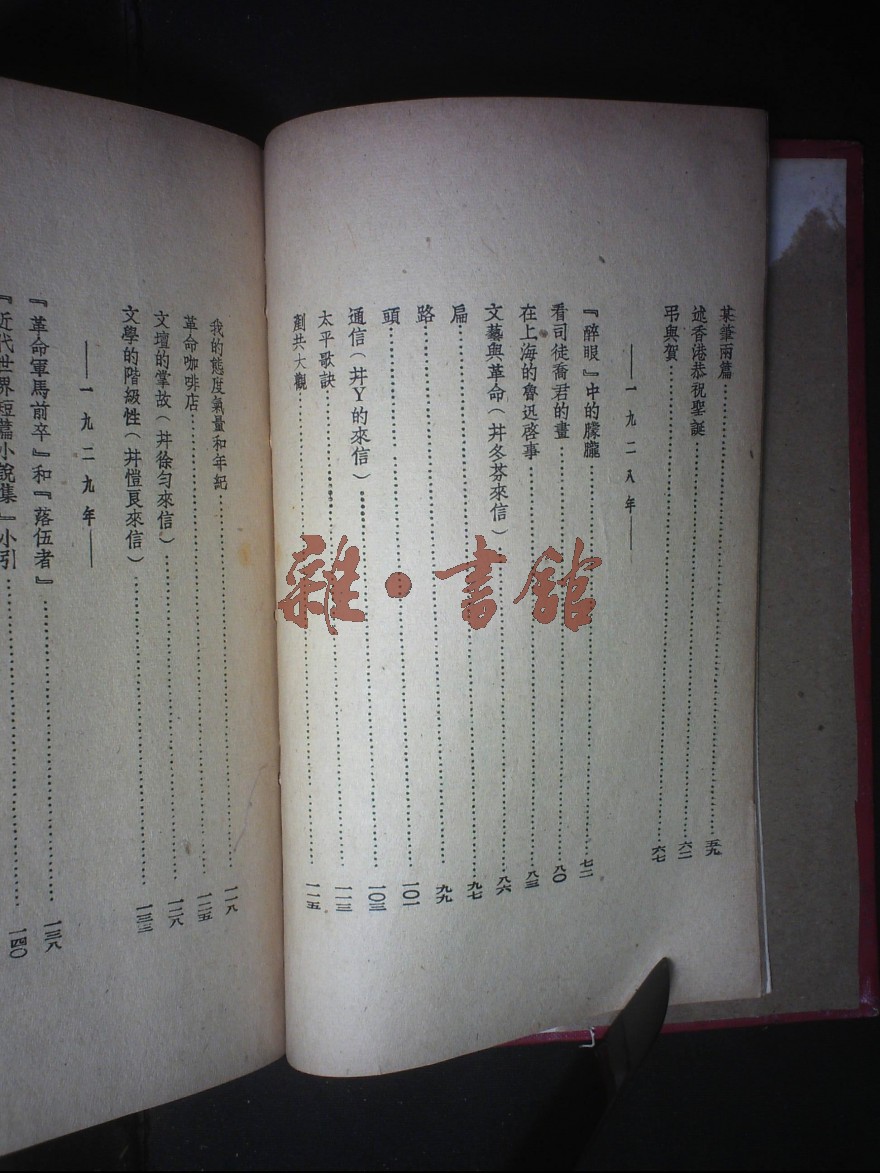 某筆兩篇……五九
述香港恭祝聖誕……六二
弔與賀……六七
——一九二八年——
『醉眼』中的朦朧……七二
看司徒喬君的畫……八〇
在上海的魯迅啓事……八三
文藝與革命(幷冬芬來信)……八六
扁……九七
路……九九
頭……一〇一
通信(幷Y的來信)……一〇三
太平歌訣……一一三
剷共大觀……一一五
我的態度氣量和年紀……一一八
革命咖啡店……一二五
文壇的掌故(幷徐勻來信)……一二八
文學的階級性(幷愷良來信)……一三三
——一九二九年——
『革命軍馬前卒』和『落伍者』……一三八
『近代世界短篇小說集』小引……一四〇
雜·書館